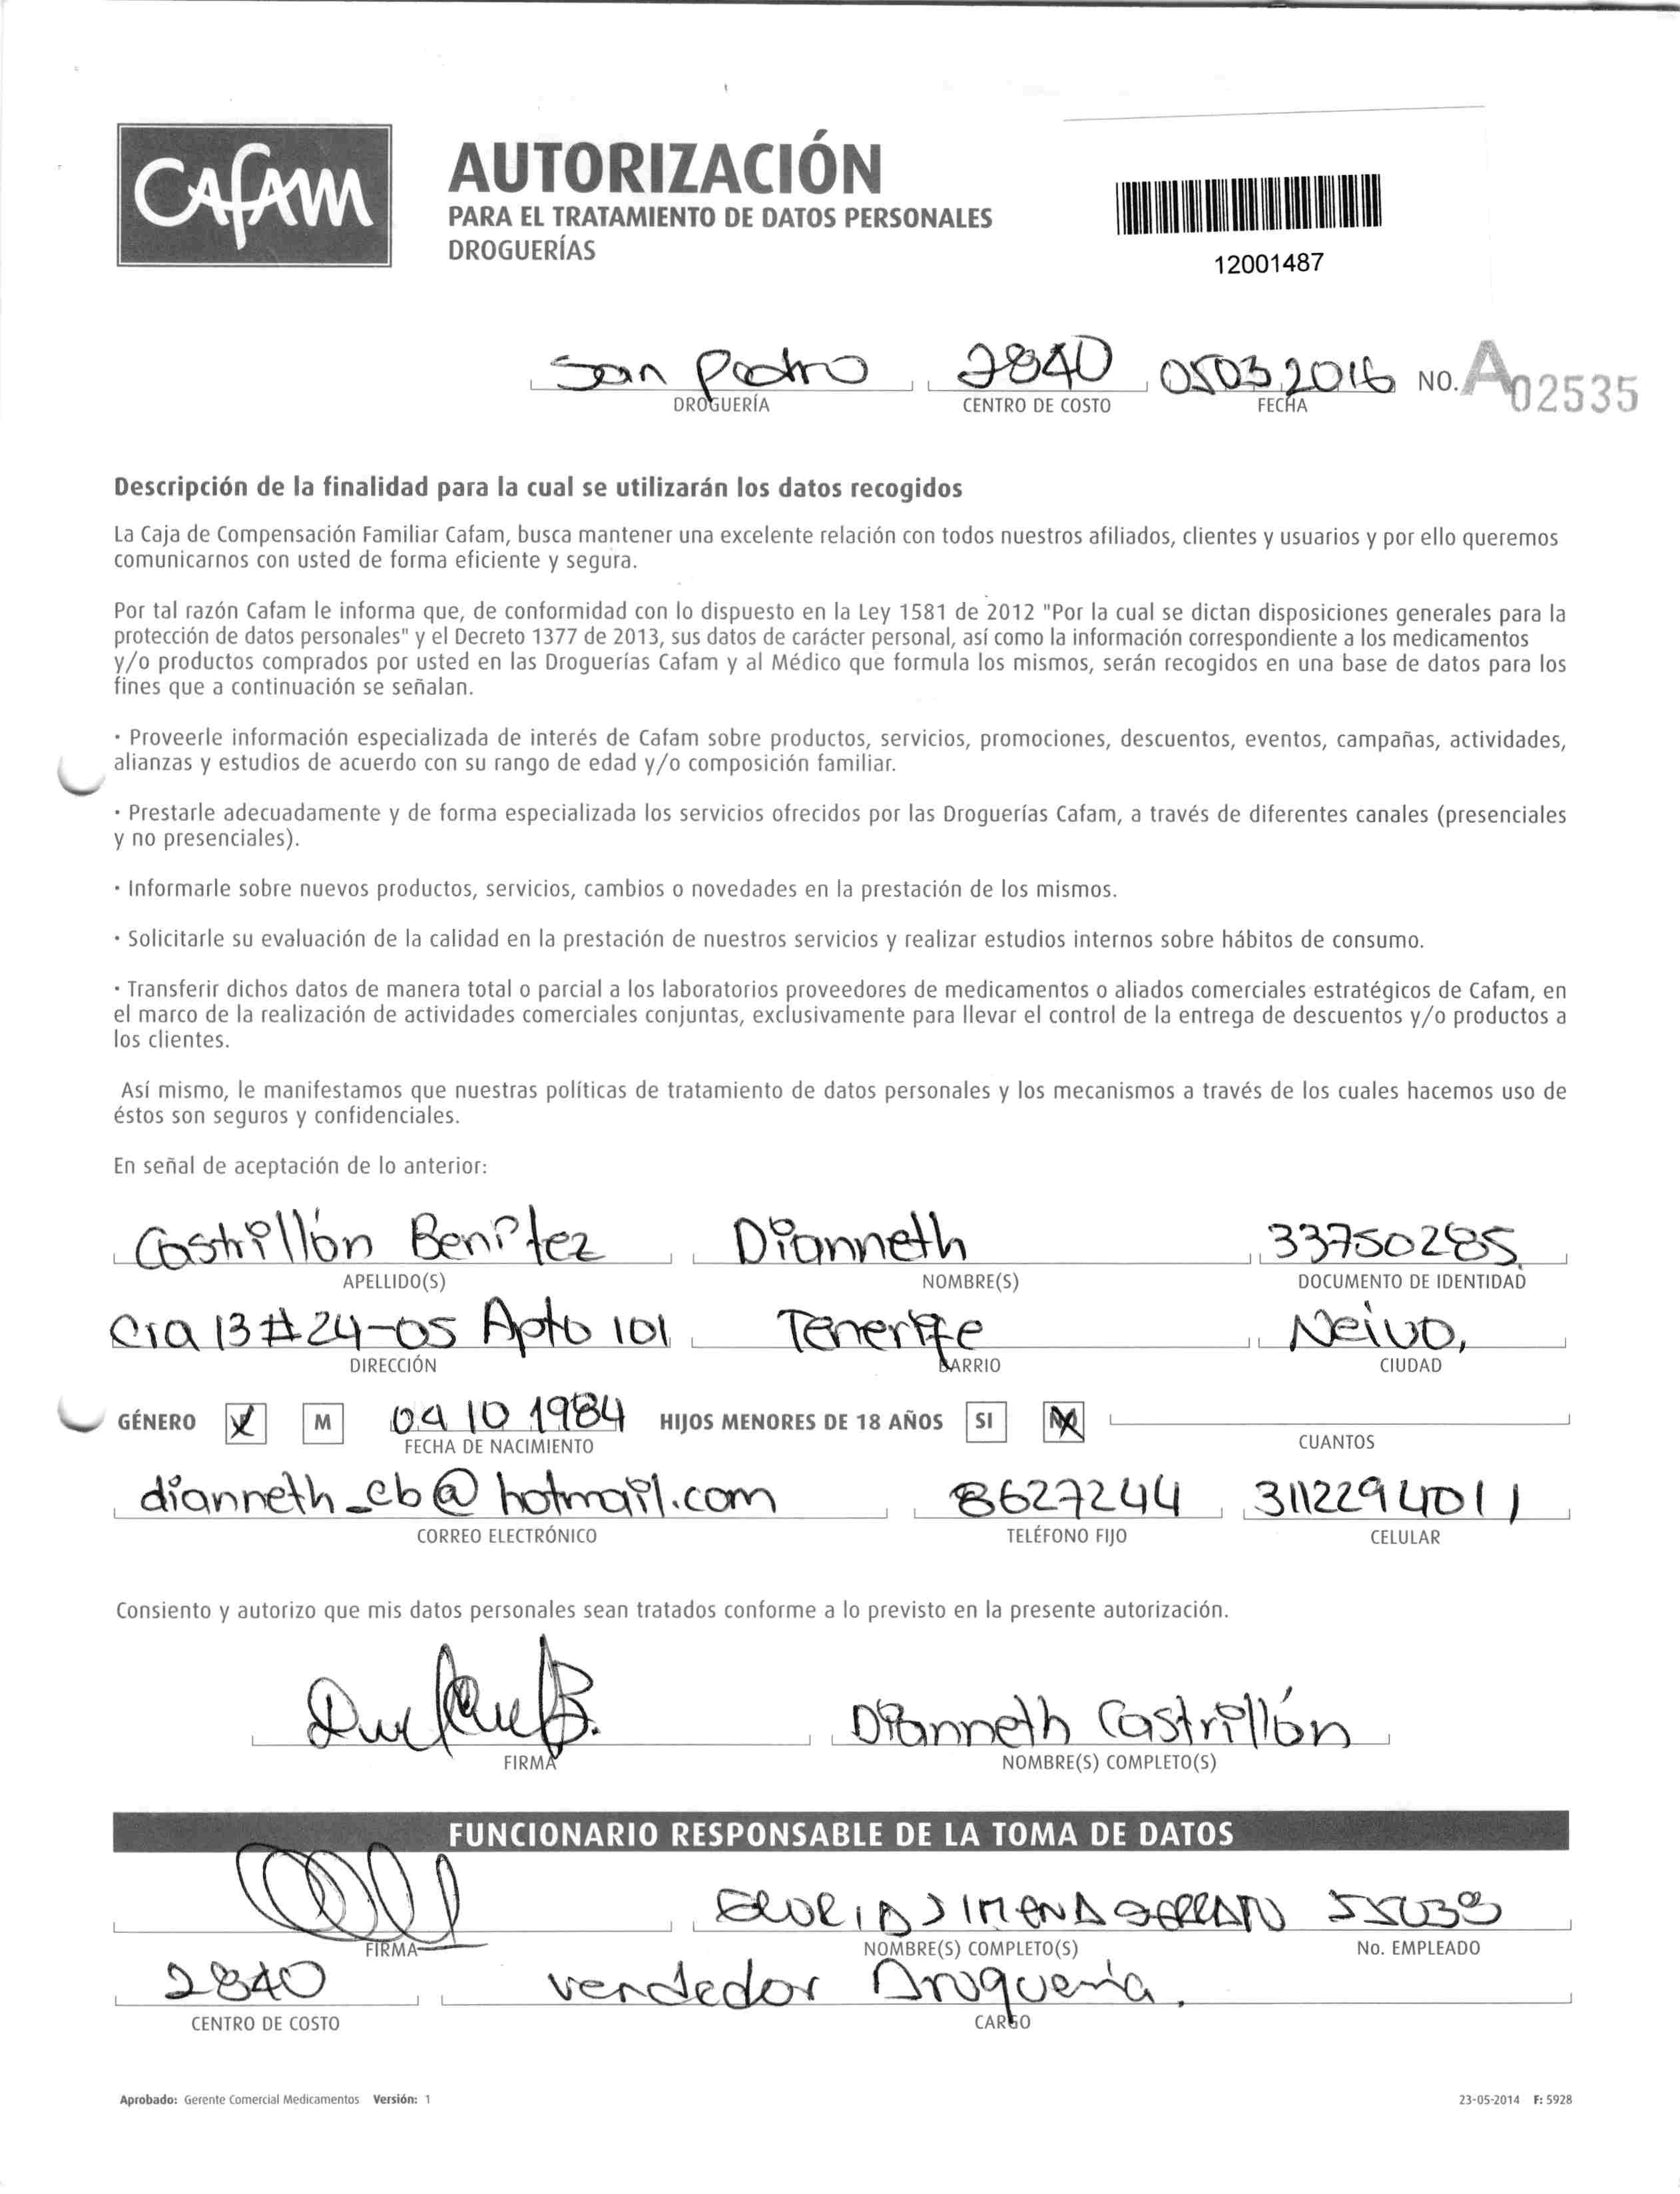 CAFAM
AUTORIZACIÓN
PARA EL TRATAMIENTO DE DATOS PERSONALES
DROGUERÍAS
12001487
San Pedro 2840 05032016 NO. A02535
DROGUERÍA CENTRO DE COSTO FECHA
Descripción de la finalidad para la cual se utilizarán los datos recogidos
La Caja de Compensación Familiar Cafam, busca mantener una excelente relación con todos nuestros afiliados, clientes y usuarios y por ello queremos
comunicarnos con usted de forma eficiente y segura.
Por tal razón Cafam le informa que, de conformidad con lo dispuesto en la Ley 1581 de 2012 "Por la cual se dictan disposiciones generales para la
protección de datos personales" y el Decreto 1377 de 2013, sus datos de carácter personal, así como la información correspondiente a los medicamentos
y/o productos comprados por usted en las Droguerías Cafam y al Médico que formula los mismos, serán recogidos en una base de datos para los
fines que a continuación se señalan.
· Proveerle información especializada de interés de Cafam sobre productos, servicios, promociones, descuentos, eventos, campañas, actividades,
alianzas y estudios de acuerdo con su rango de edad y/o composición familiar.
· Prestarle adecuadamente y de forma especializada los servicios ofrecidos por las Droguerías Cafam, a través de diferentes canales (presenciales
y no presenciales).
· Informarle sobre nuevos productos, servicios, cambios o novedades en la prestación de los mismos.
· Solicitarle su evaluación de la calidad en la prestación de nuestros servicios y realizar estudios internos sobre hábitos de consumo.
· Transferir dichos datos de manera total o parcial a los laboratorios proveedores de medicamentos o aliados comerciales estratégicos de Cafam, en
el marco de la realización de actividades comerciales conjuntas, exclusivamente para llevar el control de la entrega de descuentos y/o productos a
los clientes.
Así mismo, le manifestamos que nuestras políticas de tratamiento de datos personales y los mecanismos a través de los cuales hacemos uso de
éstos son seguros y confidenciales.
En señal de aceptación de lo anterior:
Castrillón Benitez Dianneth 33750285
APELLIDO(S) NOMBRE(S) DOCUMENTO DE IDENTIDAD
Cra 13 # 24-05 Apto 101 Tenerife Neiva,
DIRECCIÓN BARRIO CIUDAD
GÉNERO M 04 10 1984 HIJOS MENORES DE 18 AÑOS SI NO
FECHA DE NACIMIENTO CUANTOS
dianneth_cb@hotmail.com 8627244 3112294011
CORREO ELECTRÓNICO TELÉFONO FIJO CELULAR
Consiento y autorizo que mis datos personales sean tratados conforme a lo previsto en la presente autorización.
Dianneth Castrillón
FIRMA NOMBRE(S) COMPLETO(S)
FUNCIONARIO RESPONSABLE DE LA TOMA DE DATOS
GLORIA JIMENA 55038
FIRMA NOMBRE(S) COMPLETO(S) No. EMPLEADO
2840 vendedor Drogueria.
CENTRO DE COSTO CARGO
Aprobado: Gerente Comercial Medicamentos Versión: 1 23-05-2014 F: 5928